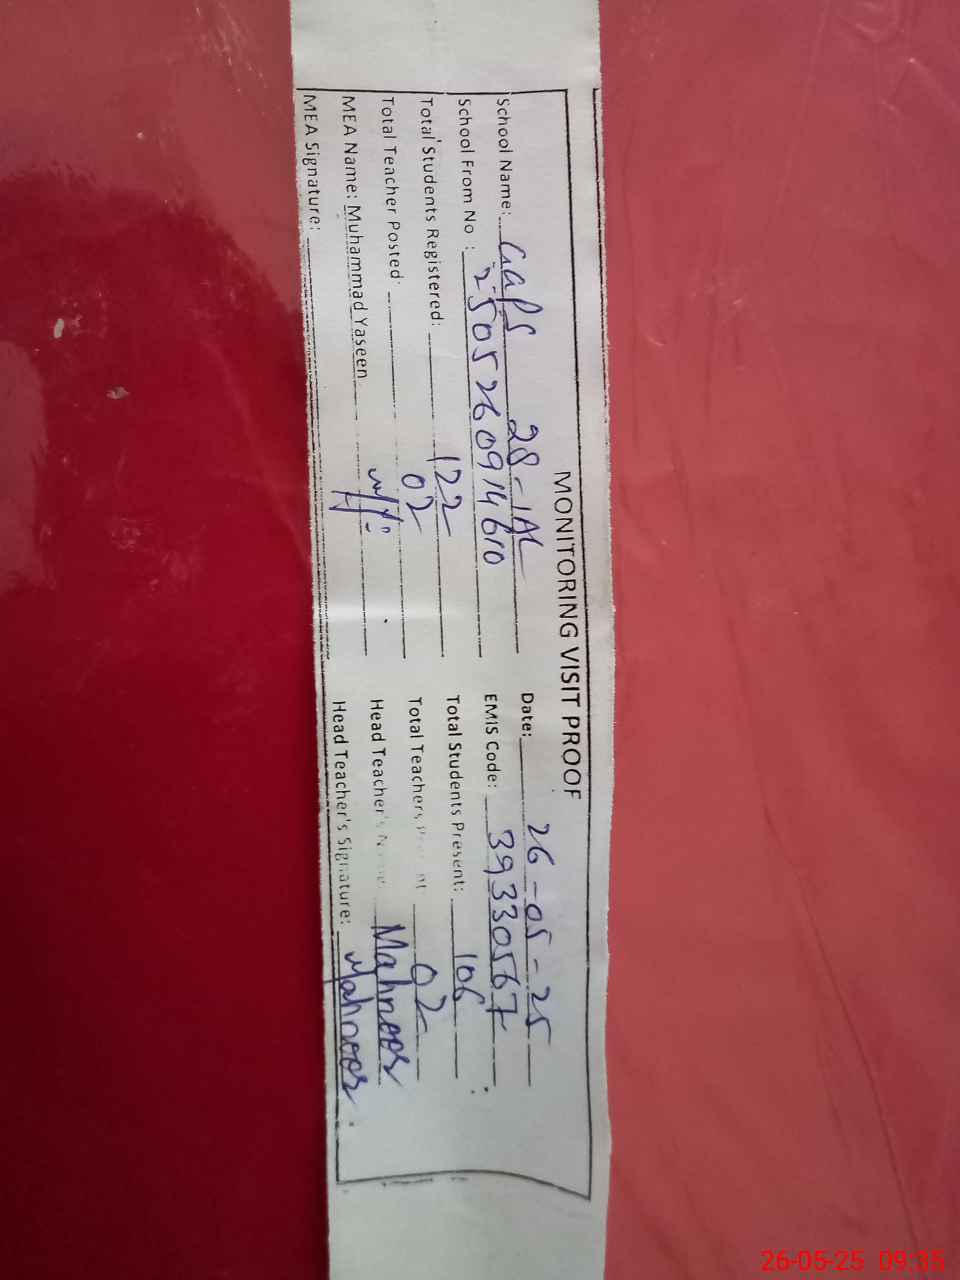 MONITORING VISIT PROOF
School Name: GGPS 28-1AL Date: 26-05-25
School From No : 2505260914610 EMIS Code: 39330567
Total Students Registered: 122 Total Students Present: 106
Total Teacher Posted: 02 Total Teachers Present 02
MEA Name: Muhammad Yaseen Head Teacher's Name: Mahnoor
MEA Signature: Head Teacher's Signature: Mahnoor
26-05-25 09:35